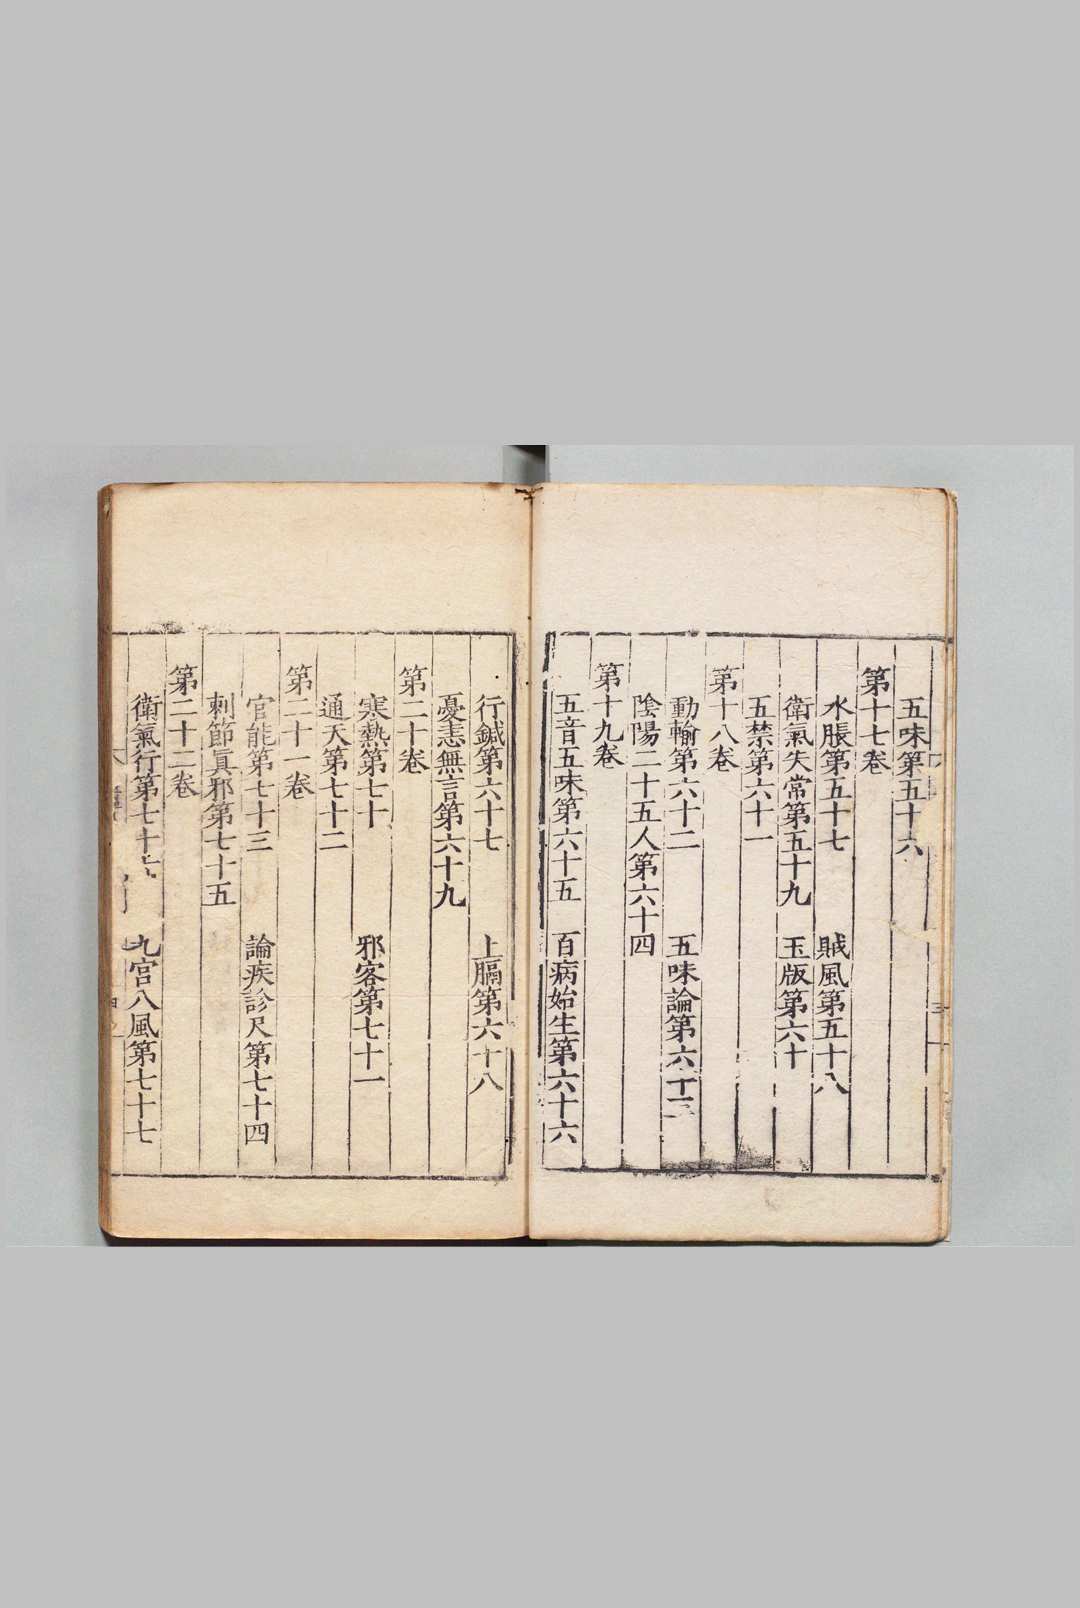 五味第五十六
第十七卷
水脹第五十七　賊風第五十八
衛氣失常第五十九　玉版第六十
五禁第六十一
第十八卷
動輸第六十二　五味論第六十三
隂陽二十五人第六十四
第十九卷
五音五味第六十五　百病始生第六十六
行鍼第六十七　上膈第六十八
憂恚無言第六十九
第二十卷
寒熱第七十　邪客第七十一
通天第七十二
第二十一卷
官能第七十三　論疾診尺第七十四
刺節真邪第七十五
第二十二卷
衛氣行第七十六　九宮八風第七十七